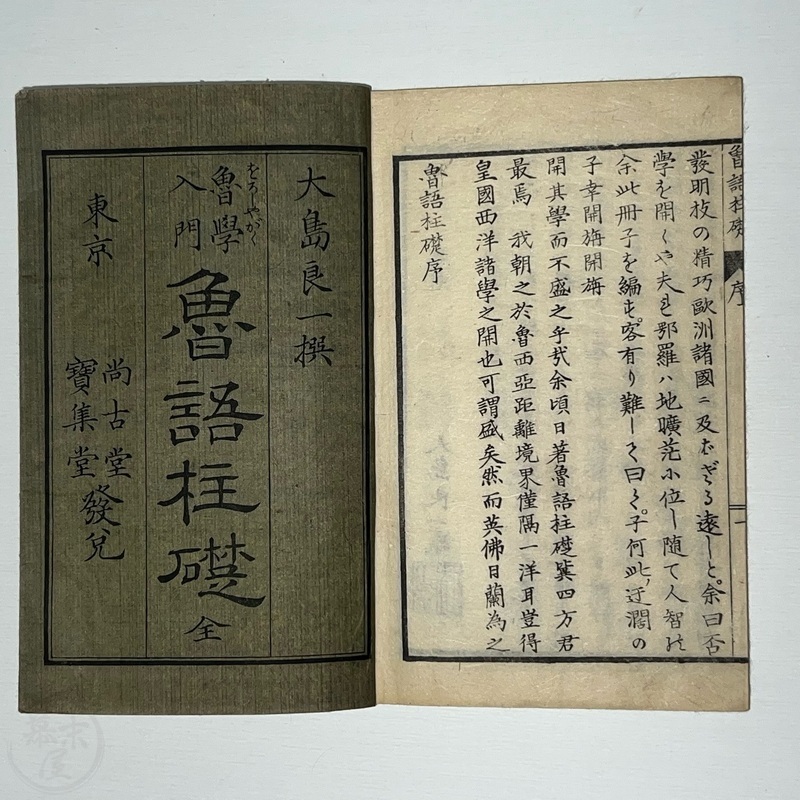 大島良一撰
をろしやがく
魯學
入門
魯語柱礎 全
東京
尚古堂
寶集堂
發兌
魯語柱礎序
皇國西洋諸學之開也可謂盛矣然而英佛日蘭為之
最焉 我朝之於魯西亞距離境界僅隔一洋耳豈得
開其學而不盛之乎哉余頃日著魯語柱礎冀四方君
子幸開悔開悔
余此冊子を編む。客有り難して曰く。子何此迂濶の
學を開くや夫れ鄂羅ハ地曠茫小位し随て人智
發明技の精巧歐洲諸國ニ及ばざる遠しと。余曰否
魯語柱礎
序
一